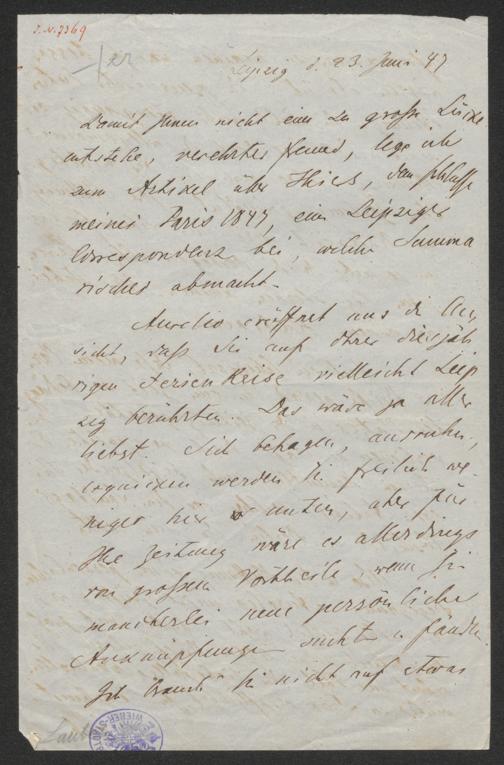 I.N. 7369
Leipzig d. 23. Juni 47
Damit Ihnen nicht eine zu große Lücke
entstehe, verehrter Freund, lege ich
zum Artikel über Thiers, dem Schlusse
meines Paris 1847, eine Leipziger
Correspondenz bei, welche Summa
risches abmacht.
Aurelio eröffnet uns die Aus
sicht, daß Sie auf Ihrer diesjäh
rigen Ferien Reise vielleicht Leip
zig berührten. Das wäre ja aller
liebst. Sich behagen, ausruhen,
erquicken werden Sie freilich we-
niger hier unten, aber für
Ihre Zeitung wäre es allerdings
von großem Vortheile, wenn Sie
mancherlei neue persönliche
Anknüpfungen suchten u. fänden.
Ich brauche Sie nicht auf etwas
Laube
WIENER STADT